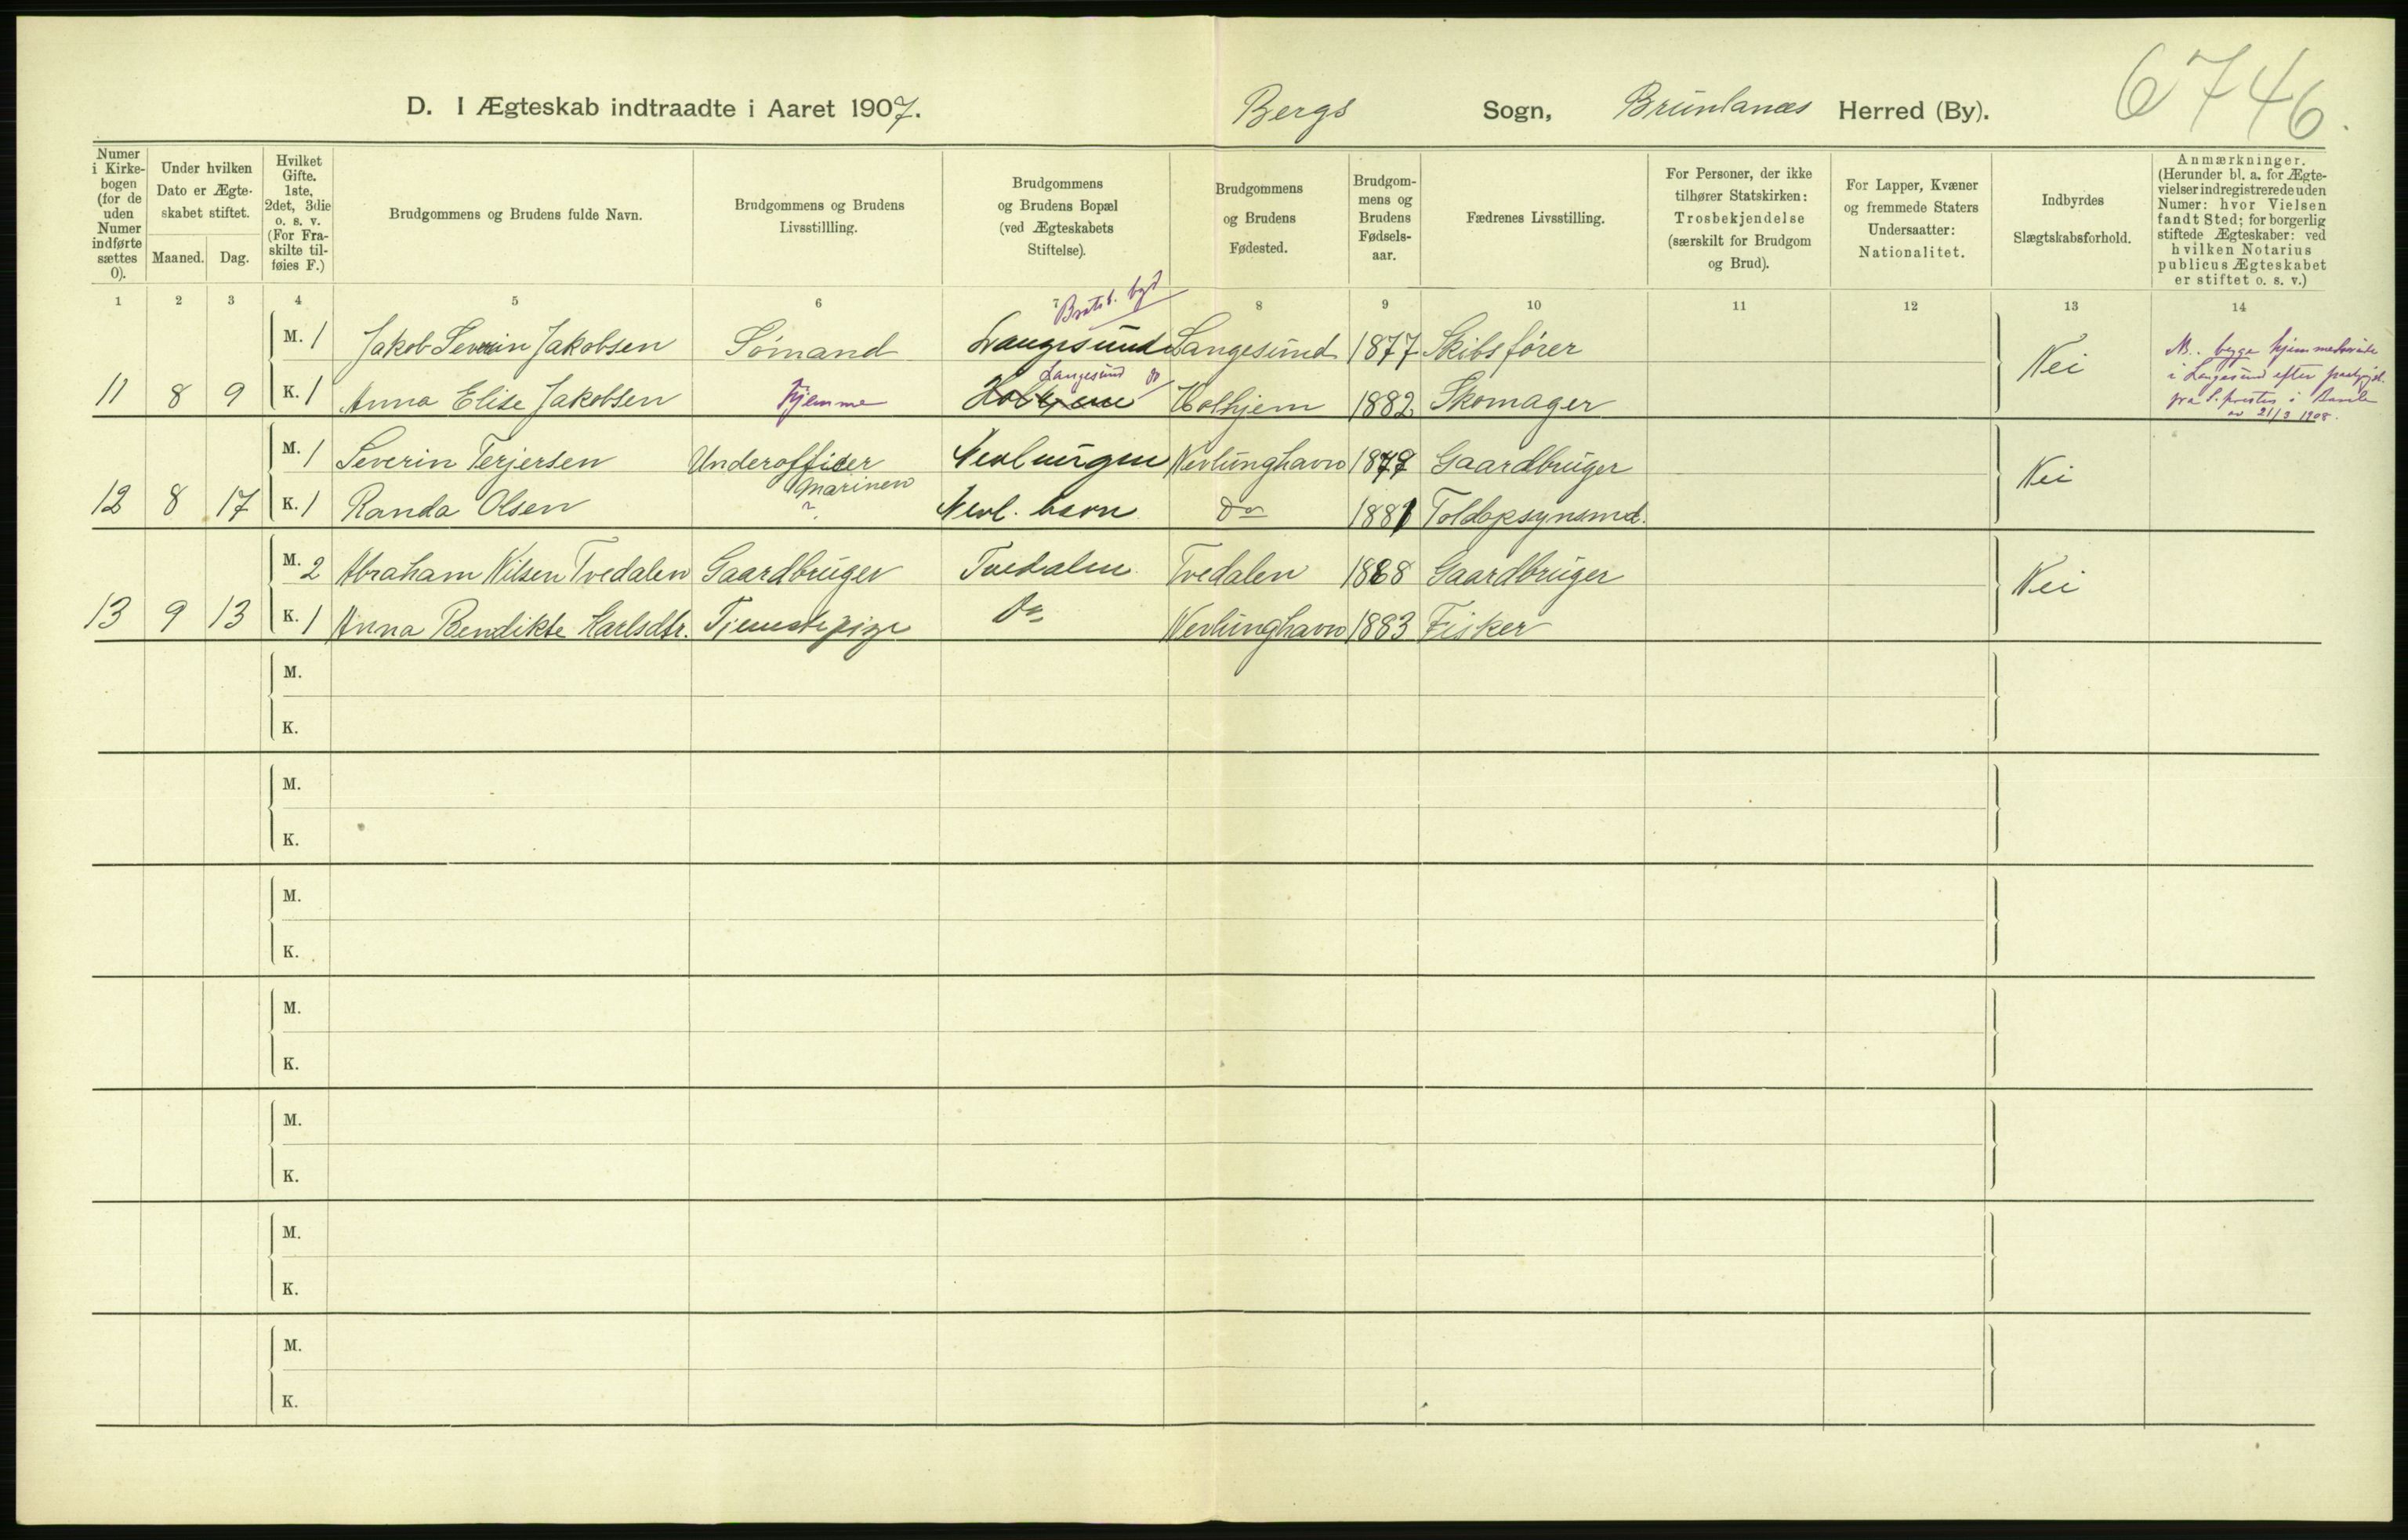 6746.
D. I Ægteskab indtraadte i Aaret 1907. Bergs Sogn, Brunlanæs Herred (By).
Numer i Kirkebogen (for de uden Numer indførte sættes 0).
Under hvilken Dato er Ægteskabet stiftet.
Maaned. Dag.
Hvilket Gifte. 1ste, 2det, 3die o. s. v. (For Fraskilte tilføies F.)
Brudgommens og Brudens fulde Navn.
Brudgommens og Brudens Livsstillling.
Brudgommens og Brudens Bopæl (ved Ægteskabets Stiftelse).
Brudgommens og Brudens Fødested.
Brudgommens og Brudens Fødselsaar.
Fædrenes Livsstilling.
For Personer, der ikke tilhører Statskirken: Trosbekjendelse (særskilt for Brudgom og Brud).
For Lapper, Kvæner og fremmede Staters Undersaatter: Nationalitet.
Indbyrdes Slægtskabsforhold.
Anmærkninger. (Herunder bl. a. for Ægtevielser indregistrerede uden Numer: hvor Vielsen fandt Sted; for borgerlig stiftede Ægteskaber: ved hvilken Notarius publicus Ægteskabet er stiftet o. s. v.)
1 2 3 4 5 6 7 8 9 10 11 12 13 14
M. 1 Jakob Severin Jakobsen Sømand Langesund Langesund 1877 Skibsfører Nei
11 8 9 K. 1 Anna Elise Jakobsen Hjemme Langesund do Holhjem 1882 Skomager
begge hjemmehørende
i Langesund efter
21/3 1908.
M. 1 Severin Terjersen Underofficer Marinen Nevlungen Nevlunghavn 1879 Gaardbruger Nei
12 8 17 K. 1 Randa Olsen ? Nevl. havn Do 1881 Toldopsynsmd.
M. 2 Abraham Nilsen Tvedalen Gaardbruger Tvedalen Tvedalen 1868 Gaardbruger Nei
13 9 13 K. 1 Anna Bendikte Karlsdtr. Tjenestepige Do Nevlunghavn 1883 Fisker
M.
K.
M.
K.
M.
K.
M.
K.
M.
K.
M.
K.
M.
K.